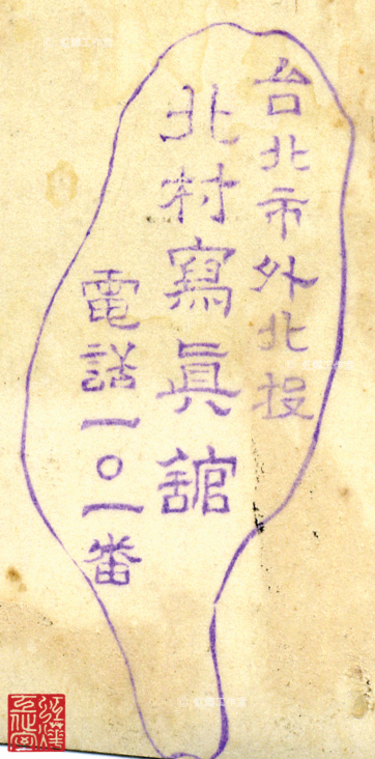 台北市外北投
北村寫眞舘
電話一〇一番